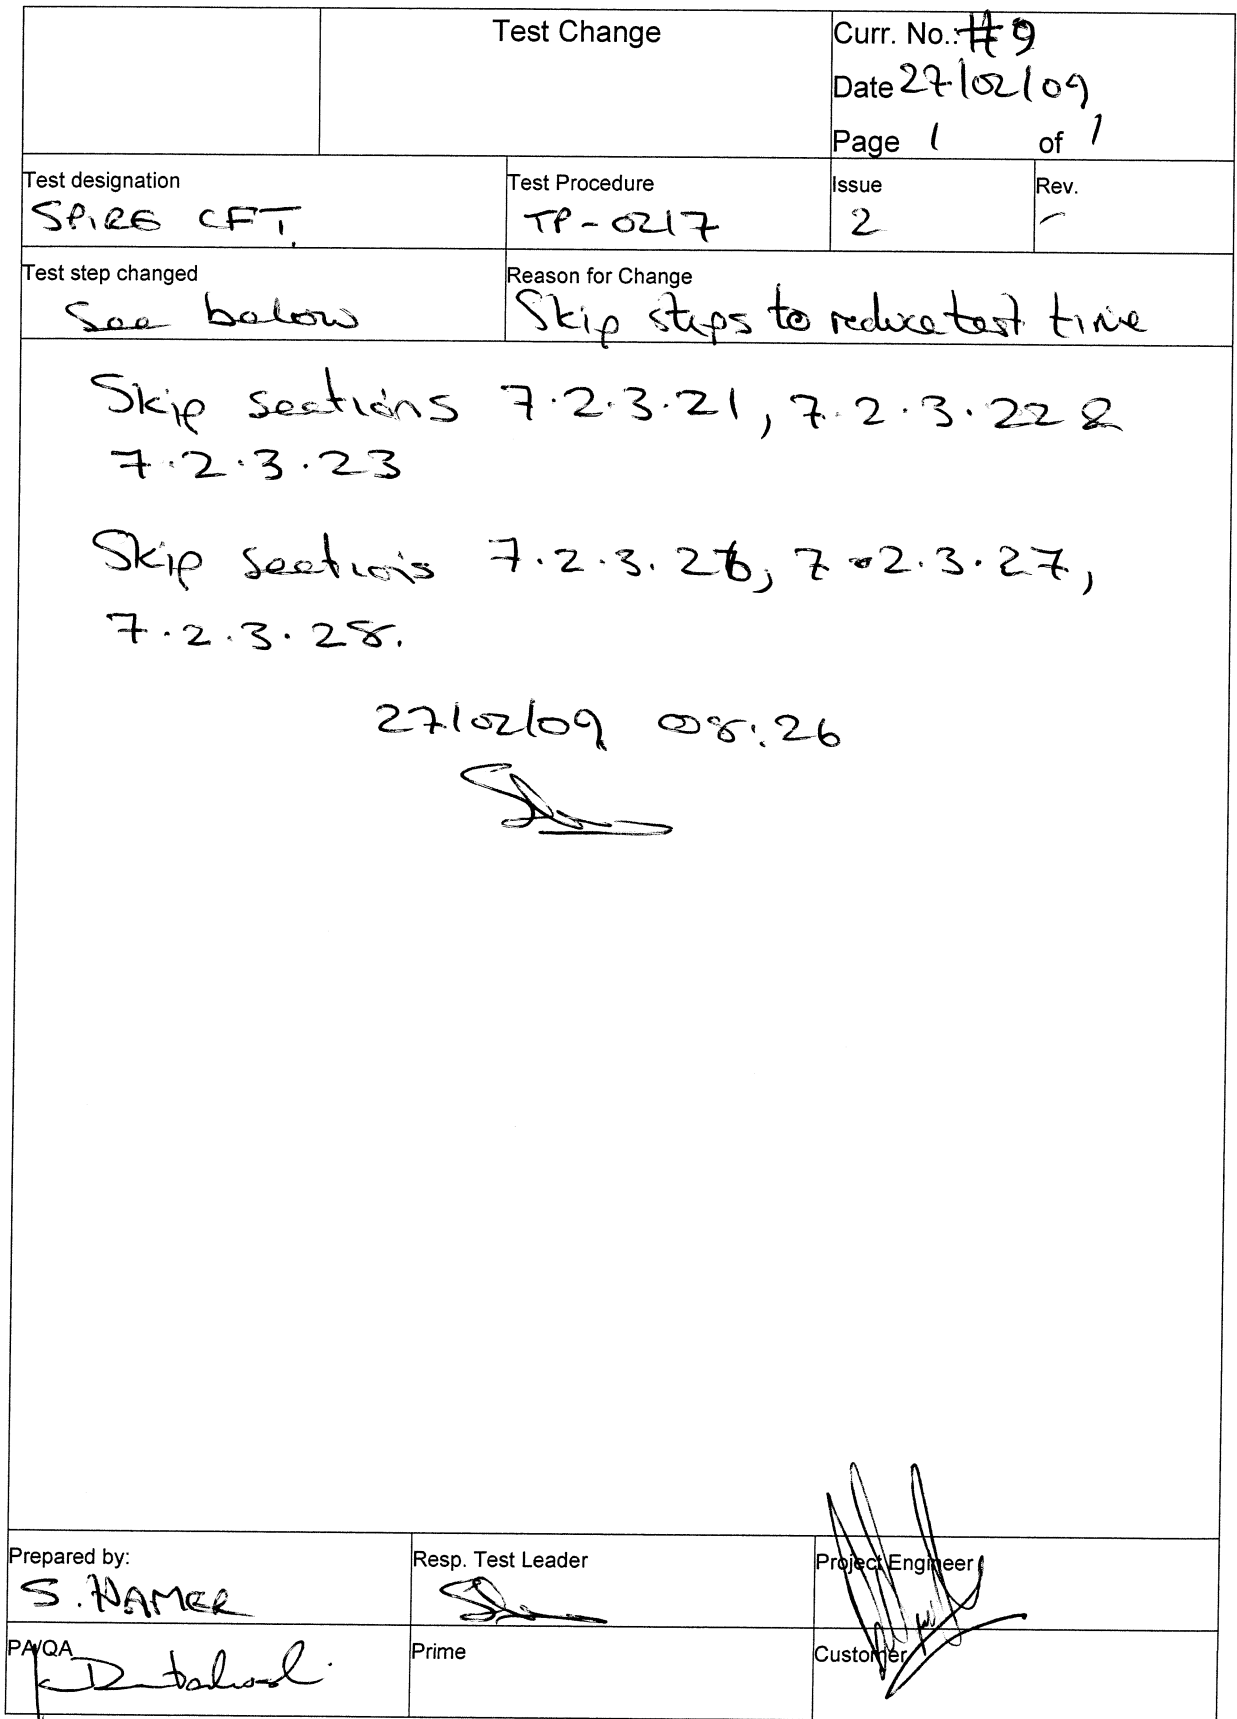 Test Change
Curr. No.: #9
Date 27/02/09
Page 1 of 1
Test designation
SPIRE CFT
Test Procedure
TP-0217
Issue
2
Rev.
-
Test step changed
See below
Reason for Change
Skip steps to reduce test time
Skip sections 7.2.3.21, 7.2.3.22 &
7.2.3.23
Skip sections 7.2.3.26, 7.2.3.27,
7.2.3.28.
27/02/09 08:26
Prepared by:
S. HAMER
Resp. Test Leader
Project Engineer
PA/QA
Prime
Customer